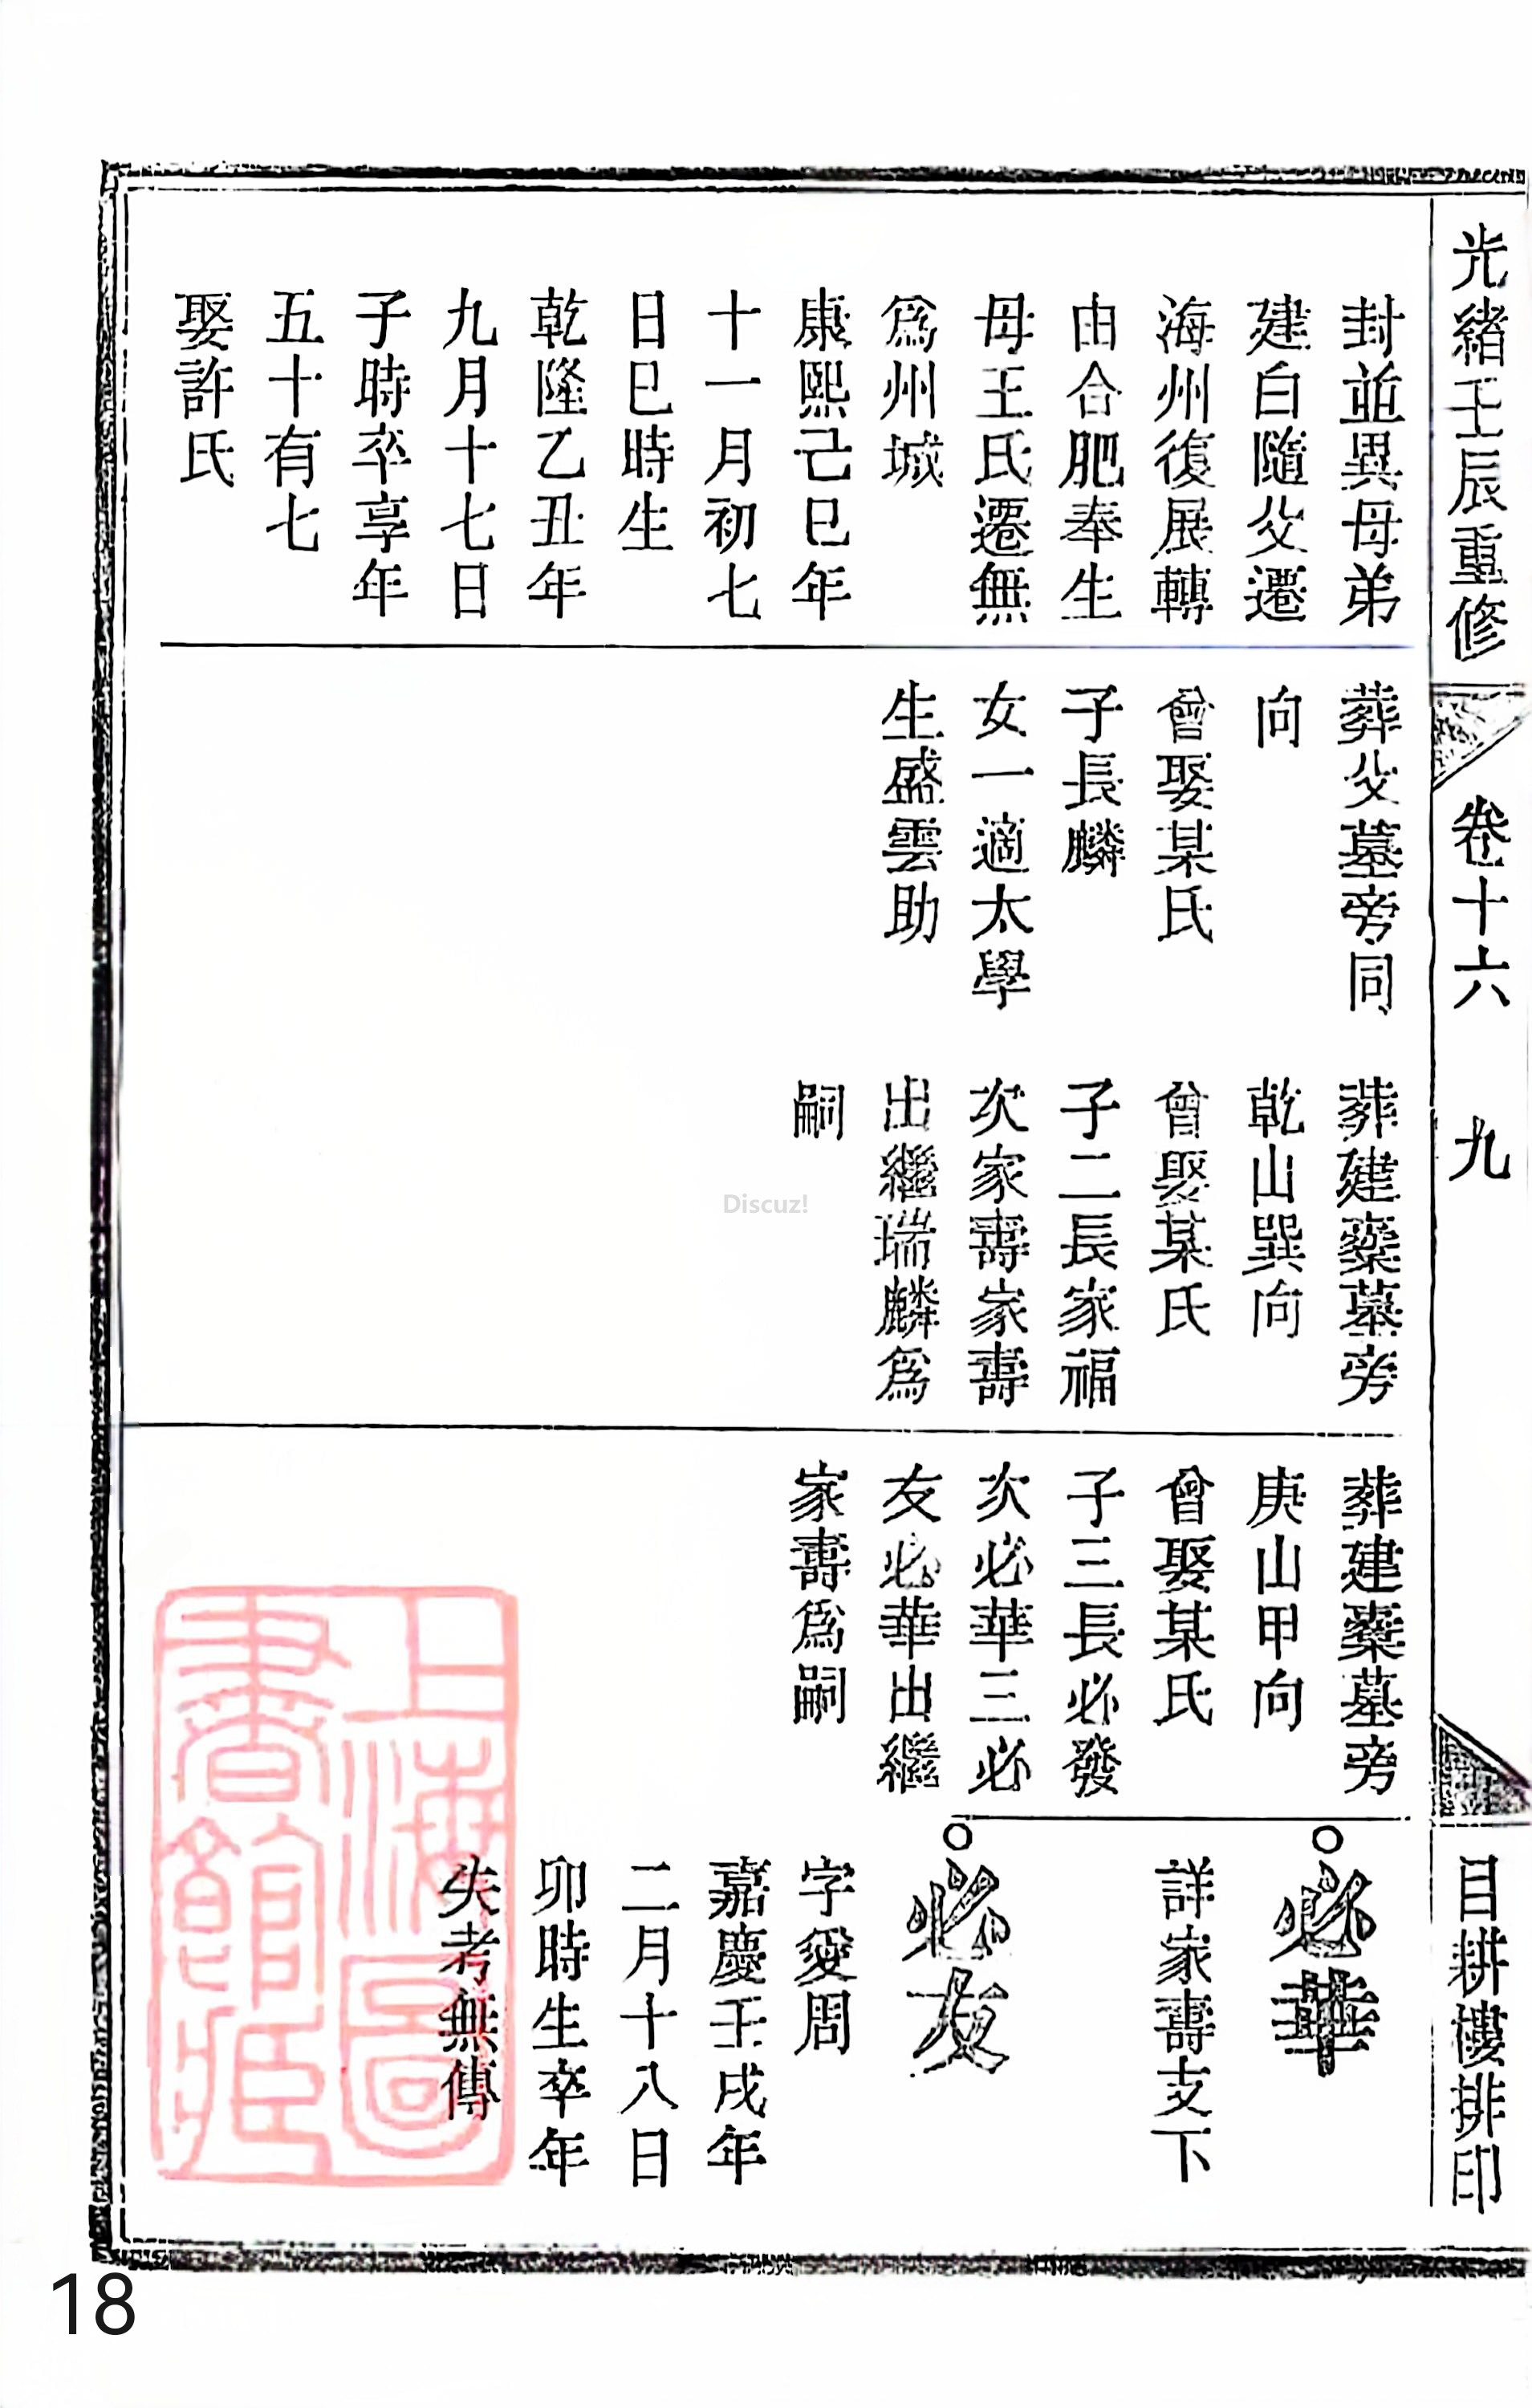 光緒壬辰重修
卷十六
九
目耕樓排印
封並異母弟
建白隨父遷
海州復展轉
由合肥奉生
母王氏遷無
爲州城
康熙己巳年
十一月初七
日巳時生
乾隆乙丑年
九月十七日
子時卒享年
五十有七
娶許氏
葬父墓旁同
向
曾娶某氏
子長麟
女一適太學
生盛雲助
葬建櫜墓旁
乾山巽向
曾娶某氏
子二長家福
次家壽家壽
出繼瑞麟爲
嗣
葬建櫜墓旁
庚山甲向
曾娶某氏
子三長必發
次必華三必
友必華出繼
家壽爲嗣
必華
詳家壽支下
必友
字愛周
嘉慶壬戌年
二月十八日
卯時生卒年
失考無傳
上海圖
書館藏
Discuz!
18